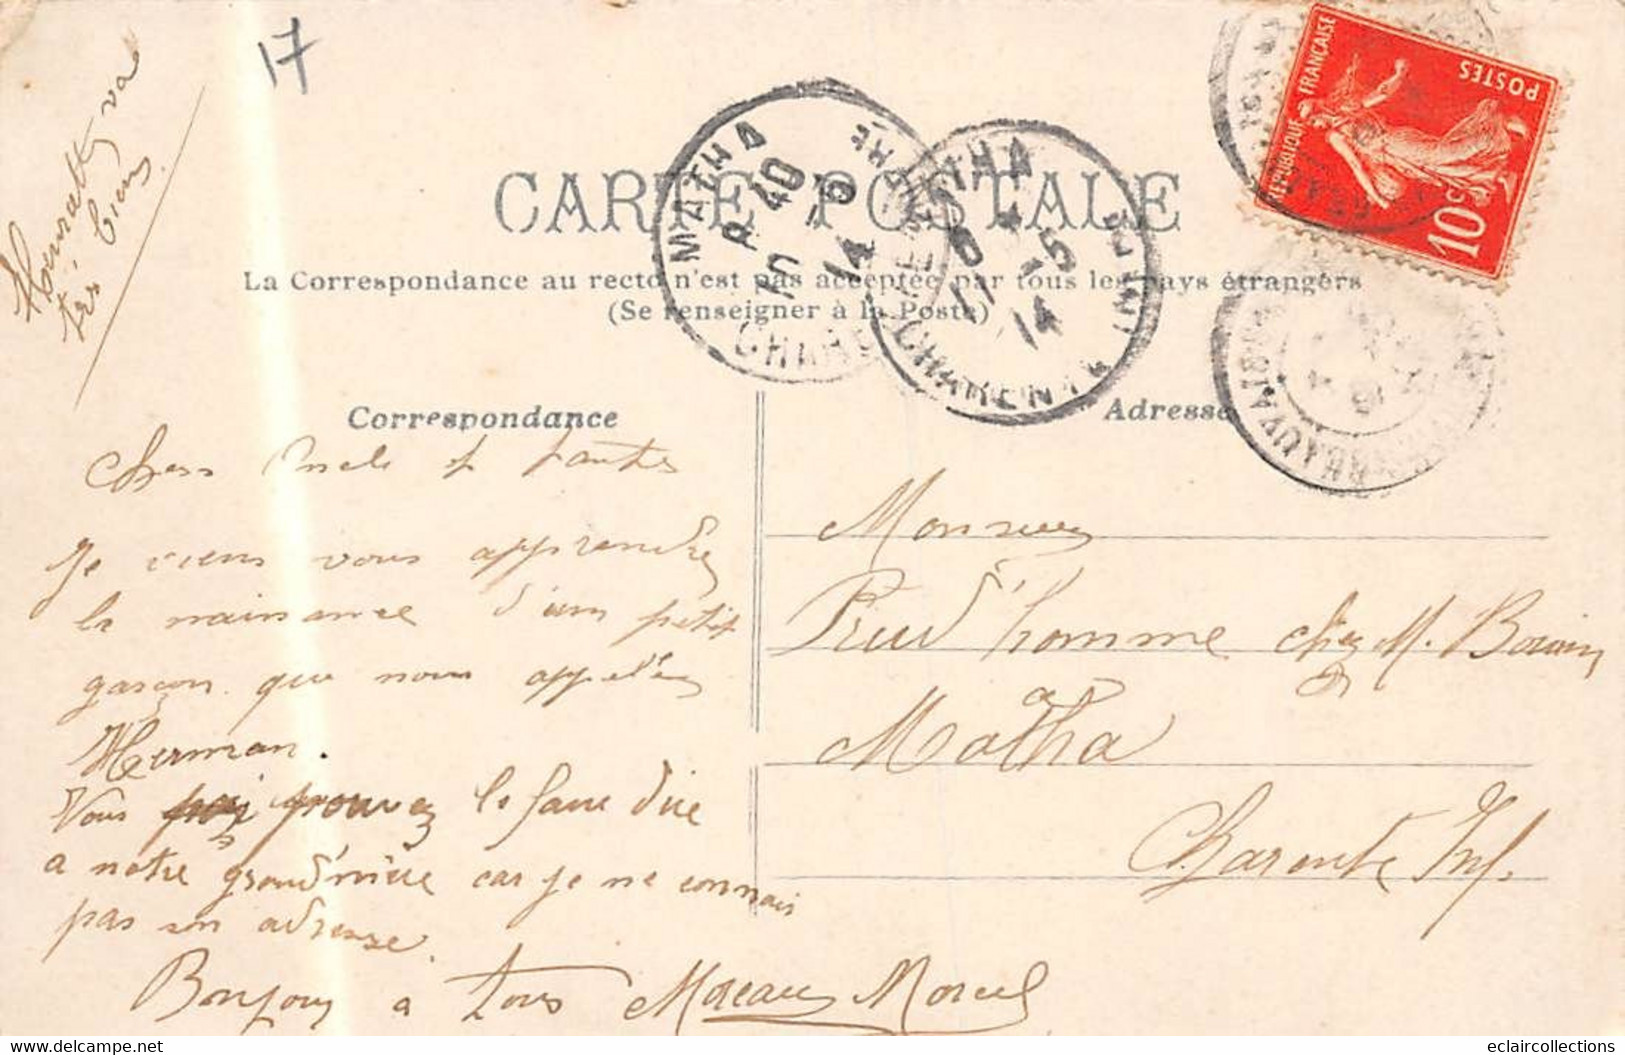 17
tout va
très bien
RÉPUBLIQUE FRANÇAISE
POSTES
10c
CARTE POSTALE
MATHA
8 40
10 5
14
MATHA
11 5
14
CHARENTE INFRE
La Correspondance au recto n'est pas acceptée par tous les pays étrangers
(Se renseigner à la Poste)
Correspondance
Adresse
Chers Oncle et tantes
Je viens vous apprendre
la naissance d'un petit
garçon que nous appelés
Herman.
Vous pouvez le faire dire
a notre grand'mère car je ne connais
pas son adresse.
Bonjour a tous Moreau Marcel
Monsieur
Prud'homme chez M.
Matha
Charente Inf.
eclaircollections
delcampe.net